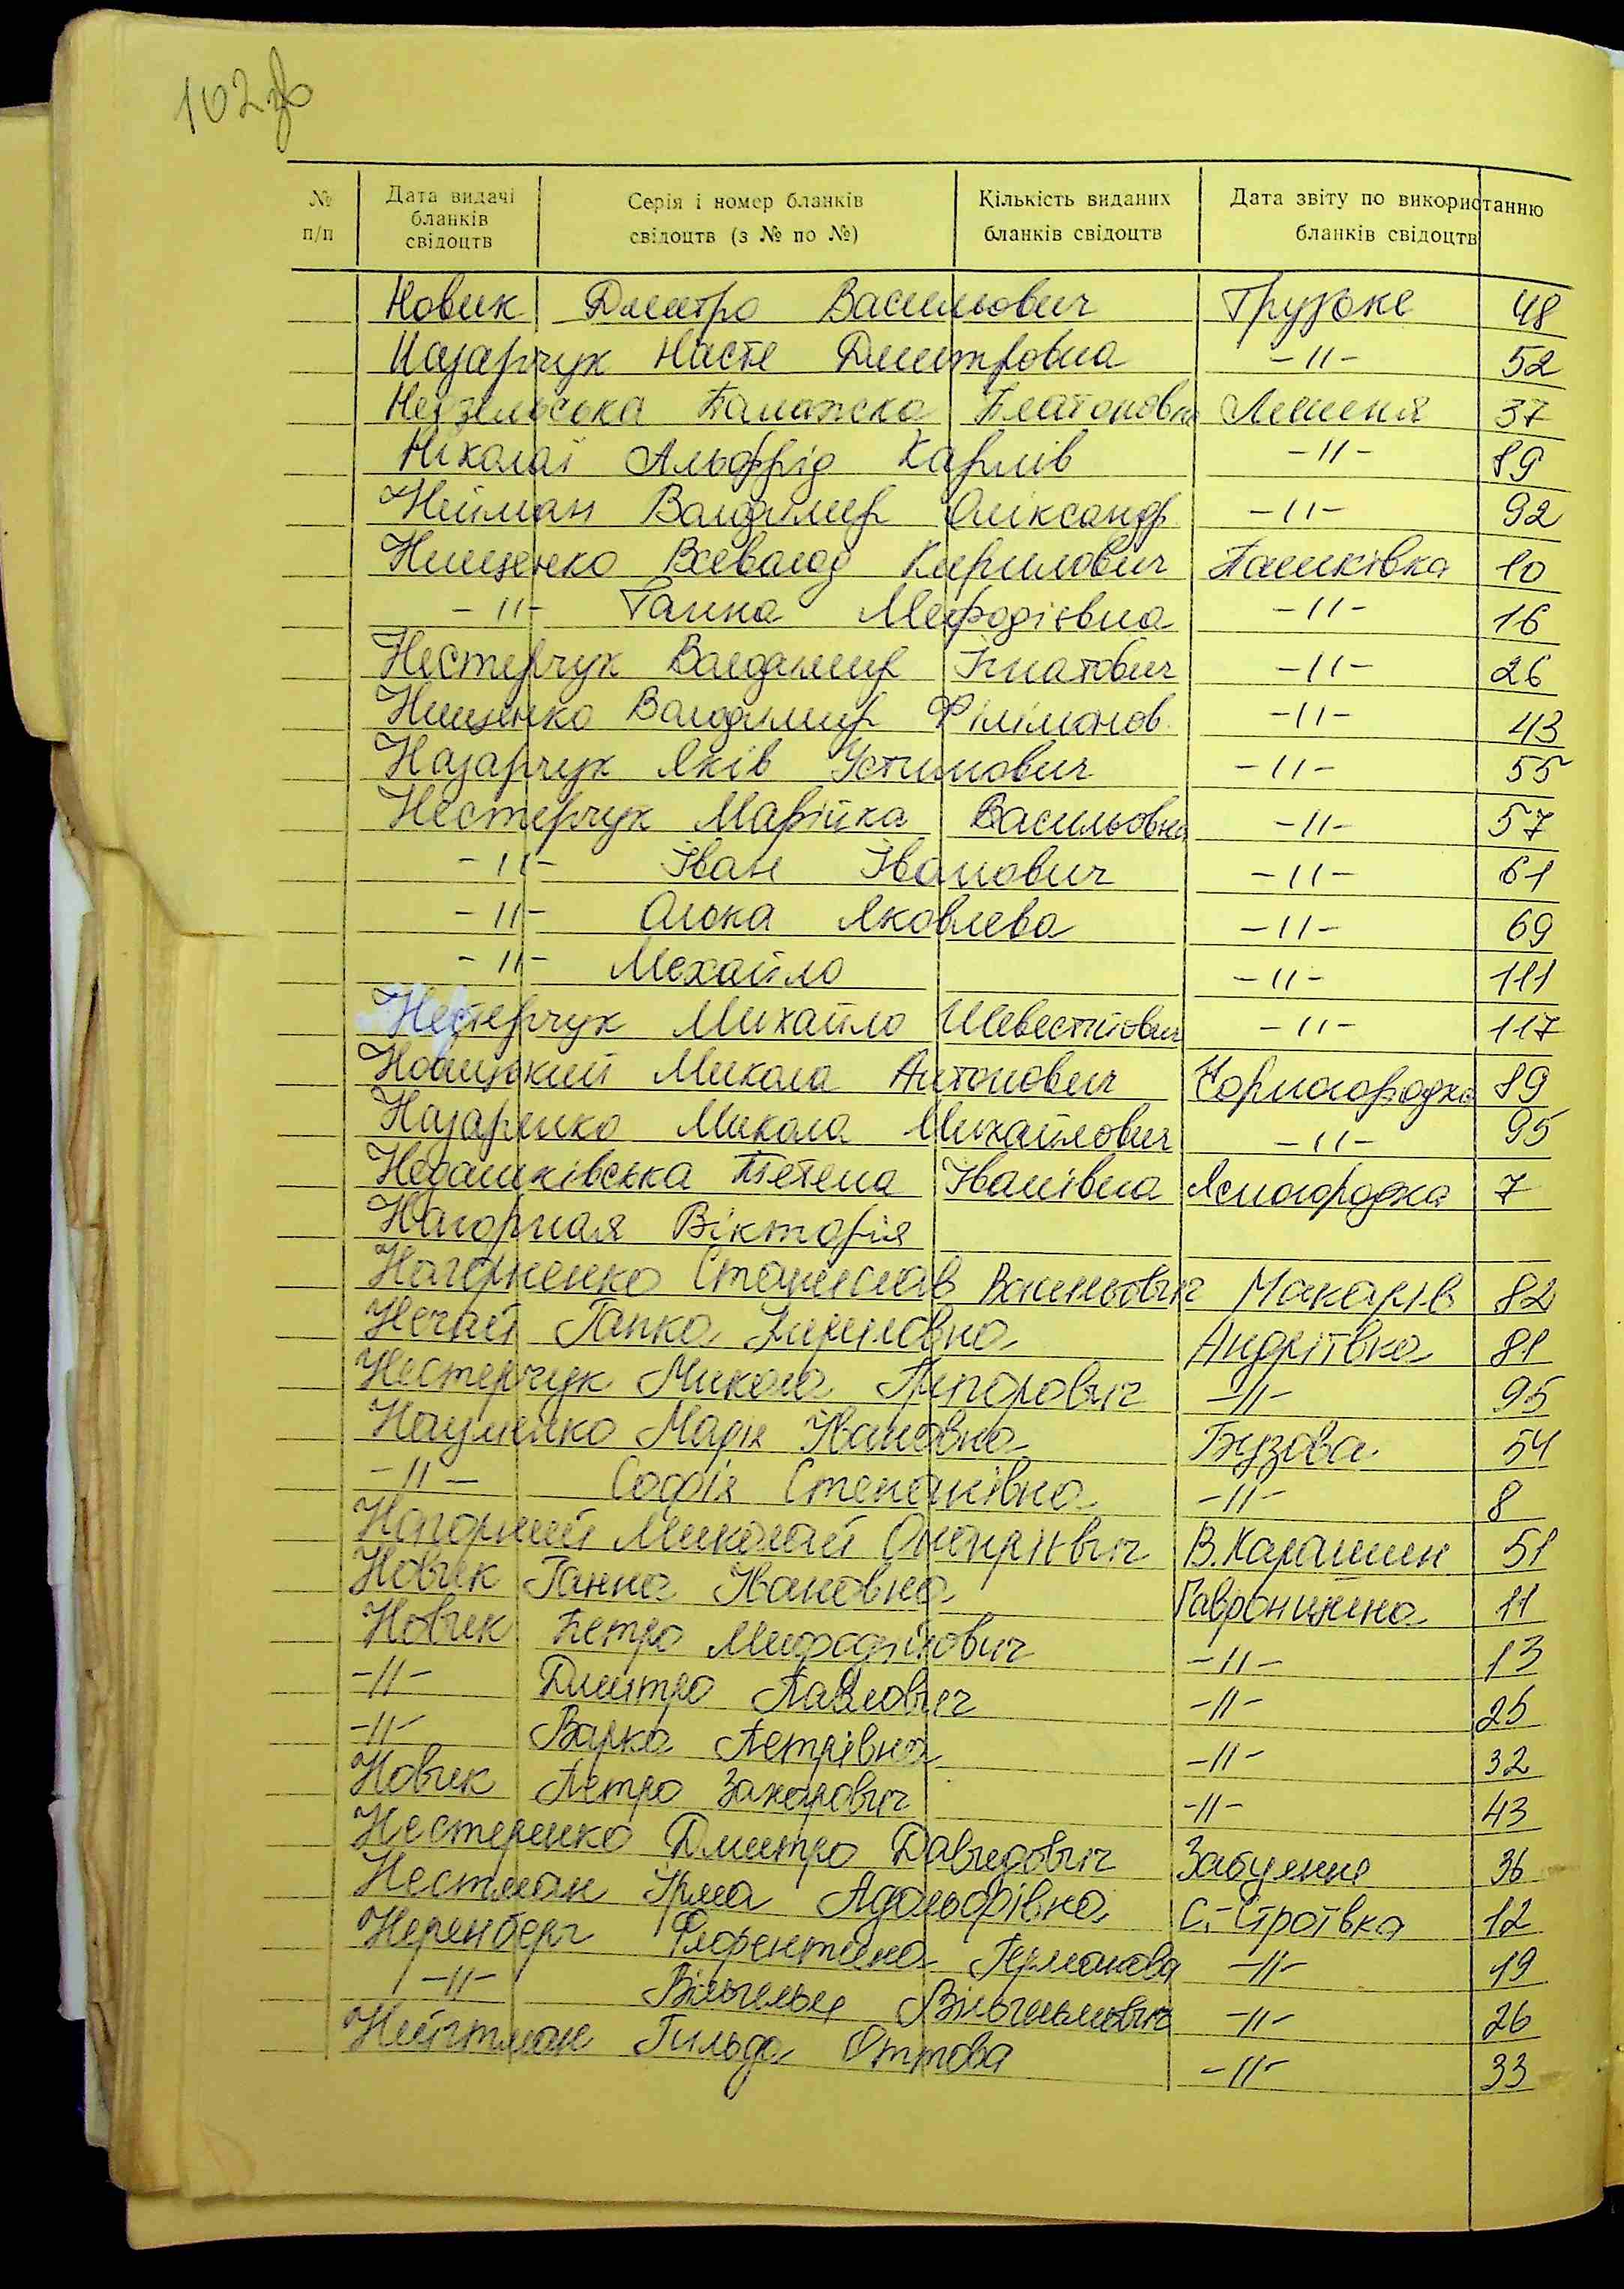 102зв
№ п/п Дата видачі бланків свідоцтв Серія і номер бланків свідоцтв (з № по №) Кількість виданих бланків свідоцтв Дата звіту по використанню бланків свідоцтв
Новик Дмитро Васильович Грузьке 48
Назарчук Насте Дмитровна -//- 52
Недзельська Палажка Платоновна Лишня 37
Ніколаї Альфрід Карлів -//- 89
Нейман Володимир Оліксандр -//- 92
Нищенко Всеволод Кирилович Пашківка 10
-//- Ганна Мефодієвна -//- 16
Нестерчук Володимир Ігнатович -//- 26
Нищенко Володимир Філімонов. -//- 43
Назарчук Яків Устимович -//- 55
Нестерчук Марійка Васильовна -//- 57
-//- Іван Іванович -//- 61
-//- Олька Яковлева -//- 69
-//- Мехайло -//- 111
Нестерчук Михайло Шевестійович -//- 117
Новицький Микола Антонович Чорногородка 89
Назаренко Микола Михайлович -//- 95
Недашківська Тетена Іванівна Ясногородка 7
Нагорная Вікторія
Нагорненко Станислав Васильович Макарів 82
Нечай Гапка Кириловна Андріївка 81
Нестерчук Микола Григорович -//- 95
Науменко Марія Івановна Бузова 54
-//- Софія Степанівна -//- 8
Нагорний Миколай Онопрієвич В.Карашин 51
Новик Ганна Івановна Гавронщина 11
Новик Петро Мефодійович -//- 13
-//- Дмитро Павлович -//- 25
-//- Варка Петрівна -//- 32
Новик Петро Захарович -//- 43
Нестеренко Дмитро Давидович Забуянне 36
Нестман Ірма Адольфівна С.-Строївка 12
Неренберг Флорентина Германова -//- 19
-//- Вільгельм Вільгельмович -//- 26
Нейгтман Гильда Оттова -//- 33